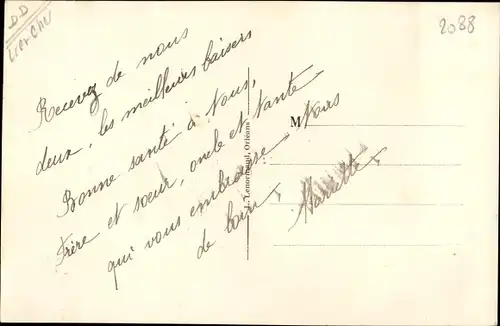 DD
2088
Recevez de nous
deux, les meilleurs baisers
Bonne santé à vous,
Frère et sœur, oncle et tante
qui vous embrasse
de loin,
M
Mariette
J. Lenormand, Orléans